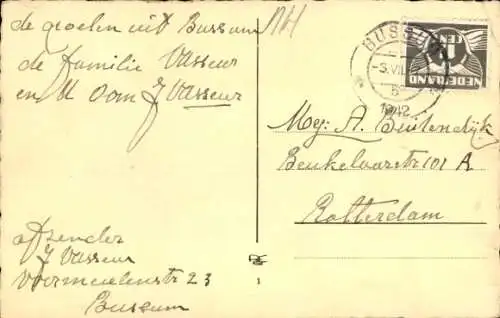 de groeten uit Bussum NH
de familie Vasseur
en U Oom J Vasseur
afzender
J Vasseur
Voormeulenstr 23
Bussum
BUSSUM
1942
1
CENT
NEDERLAND
Mej: A. Beutendijk
Beukelaarstr 101 A
Rotterdam
1